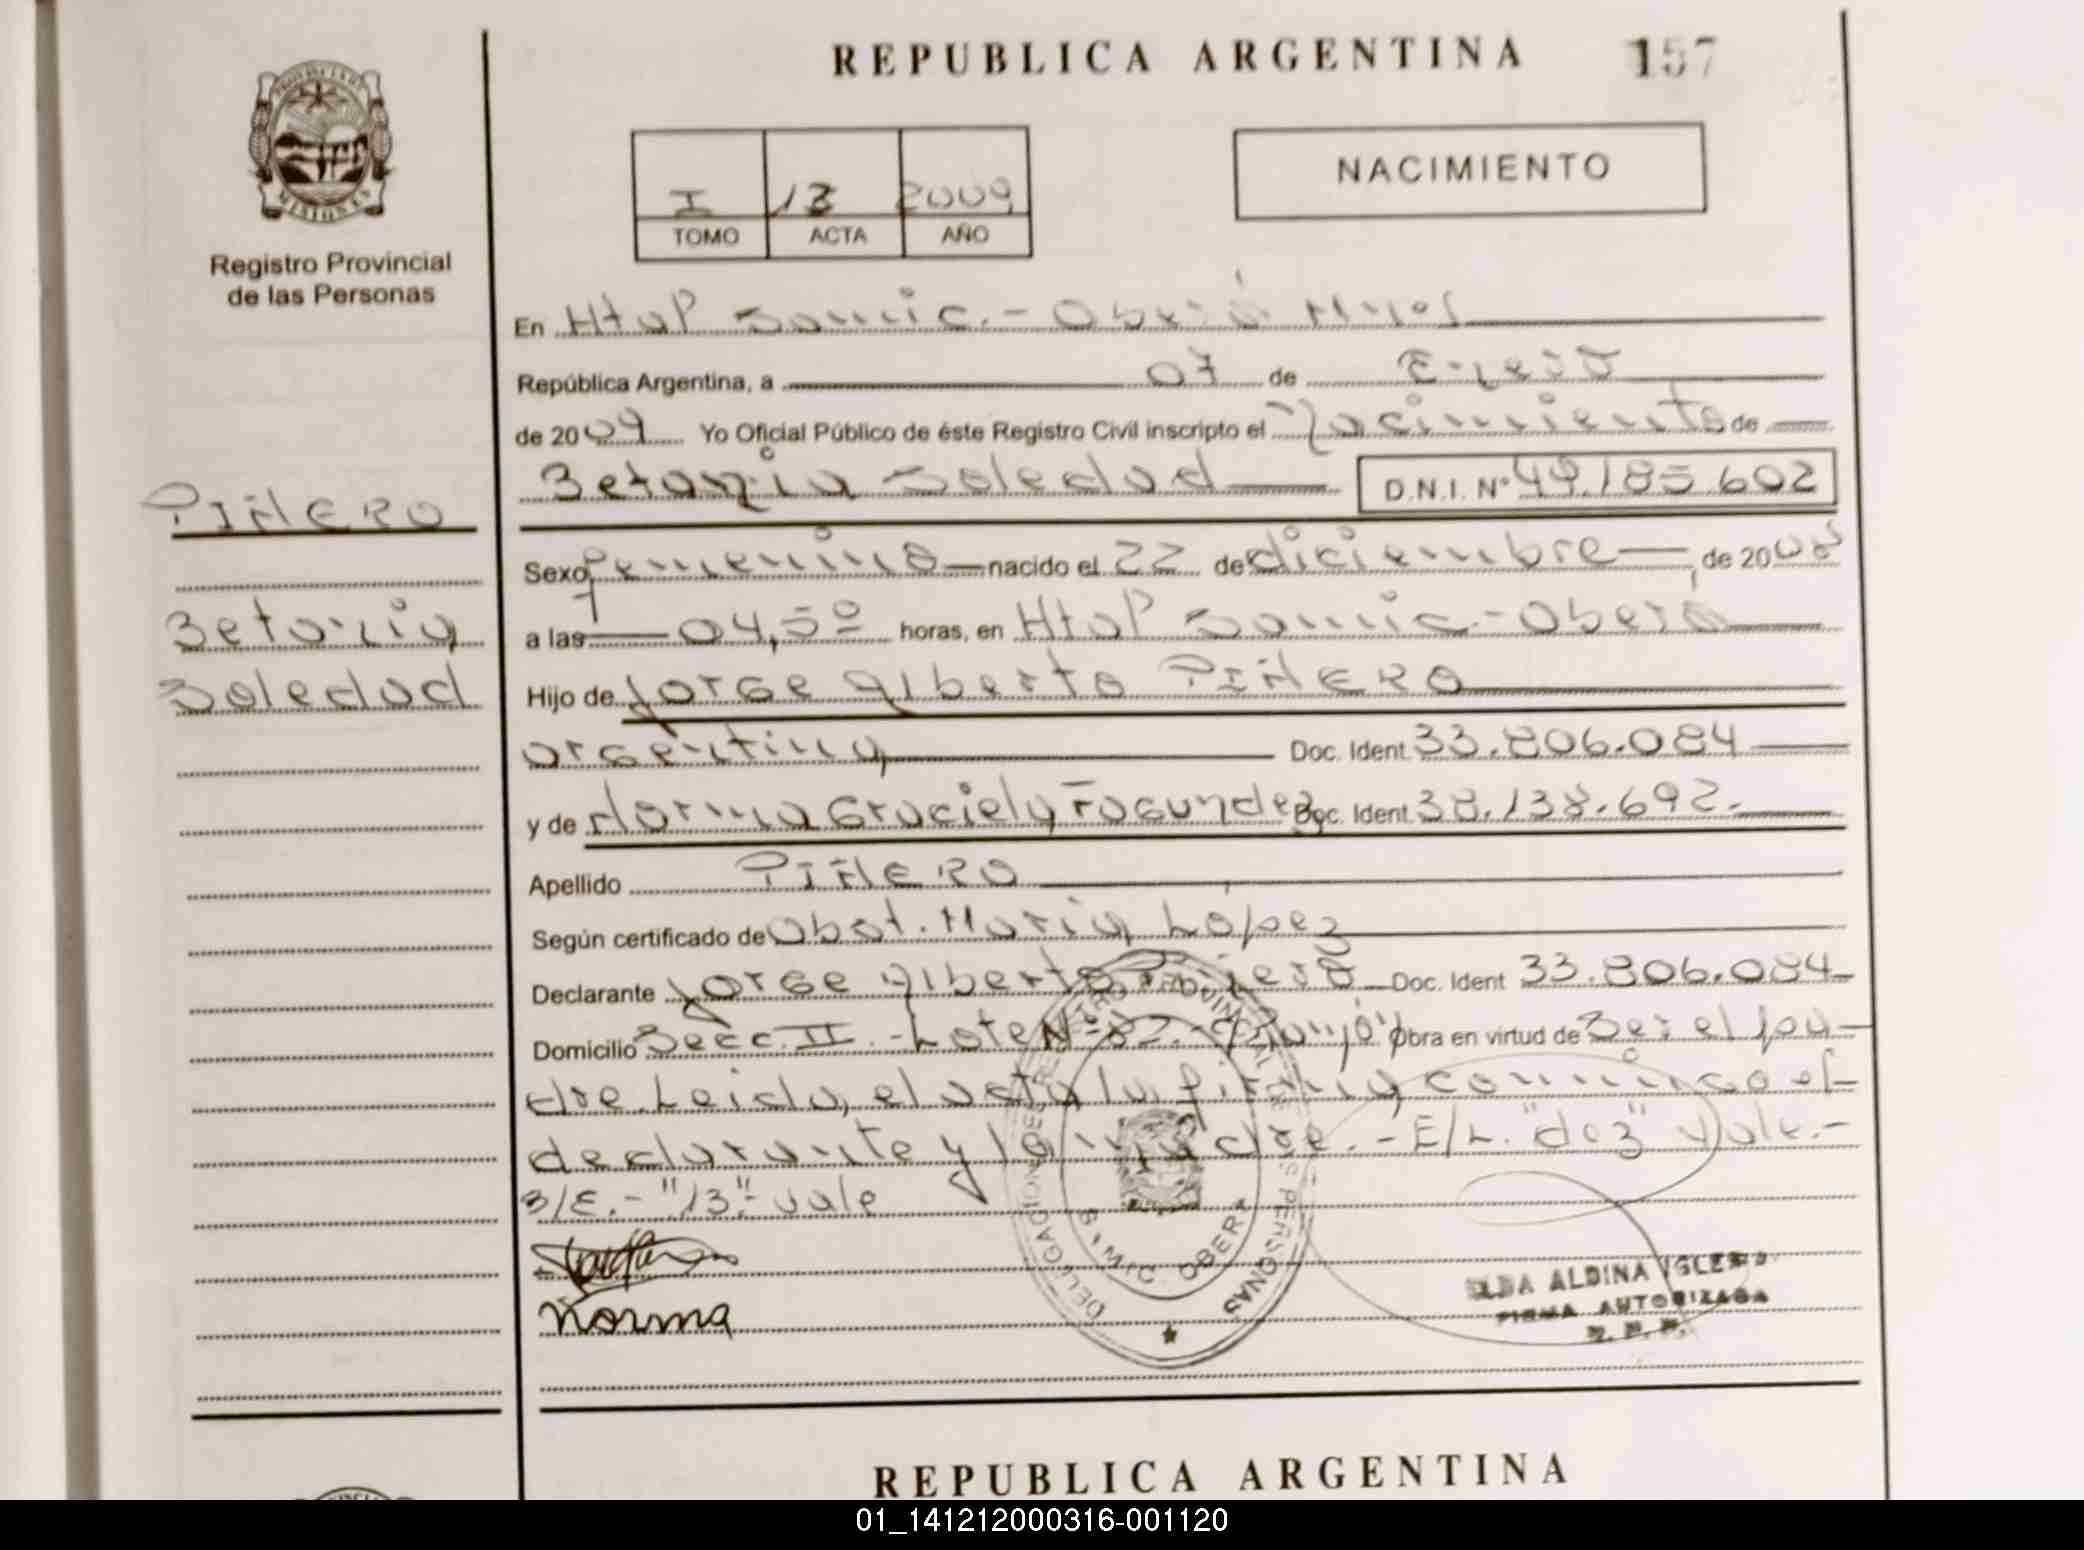 REPUBLICA ARGENTINA 157
PROVINCIA DE
MISIONES
Registro Provincial
de las Personas
NACIMIENTO
I 13 2009
TOMO ACTA AÑO
En Htal Samic.- Oberá Mnes
República Argentina, a 07 de Enero
de 2009 Yo Oficial Público de éste Registro Civil inscripto el Nacimiento de
Betania Soledad D.N.I. Nº 49.185.602
PIÑERO
Betania
Soledad
Sexo femenino nacido el 22 de diciembre de 2008
a las 04,5º horas, en Htal Samic - Oberá
Hijo de Jorge Alberto PIÑERO
argentina Doc. Ident 33.806.084
y de Norma Graciela Fagundez Doc. Ident 38.138.692.-
Apellido PIÑERO
Según certificado de Obst. María López
Declarante Jorge Alberto Piñero Doc. Ident 33.806.084
Domicilio Secc. II.- Lote Nº 82.- Obra en virtud de Ser el pa-
dre. Leída el acta la firma conmigo el
declarante y la madre.- E/L. "dez" Vale.-
S/E.- "13".- vale
Norma
DELEGACION DEL REGISTRO PROVINCIAL DE LAS PERSONAS
SAMIC OBERA
ELDA ALDINA IGLESIAS
FIRMA AUTORIZADA
R. P. P.
REPUBLICA ARGENTINA
01_141212000316-001120